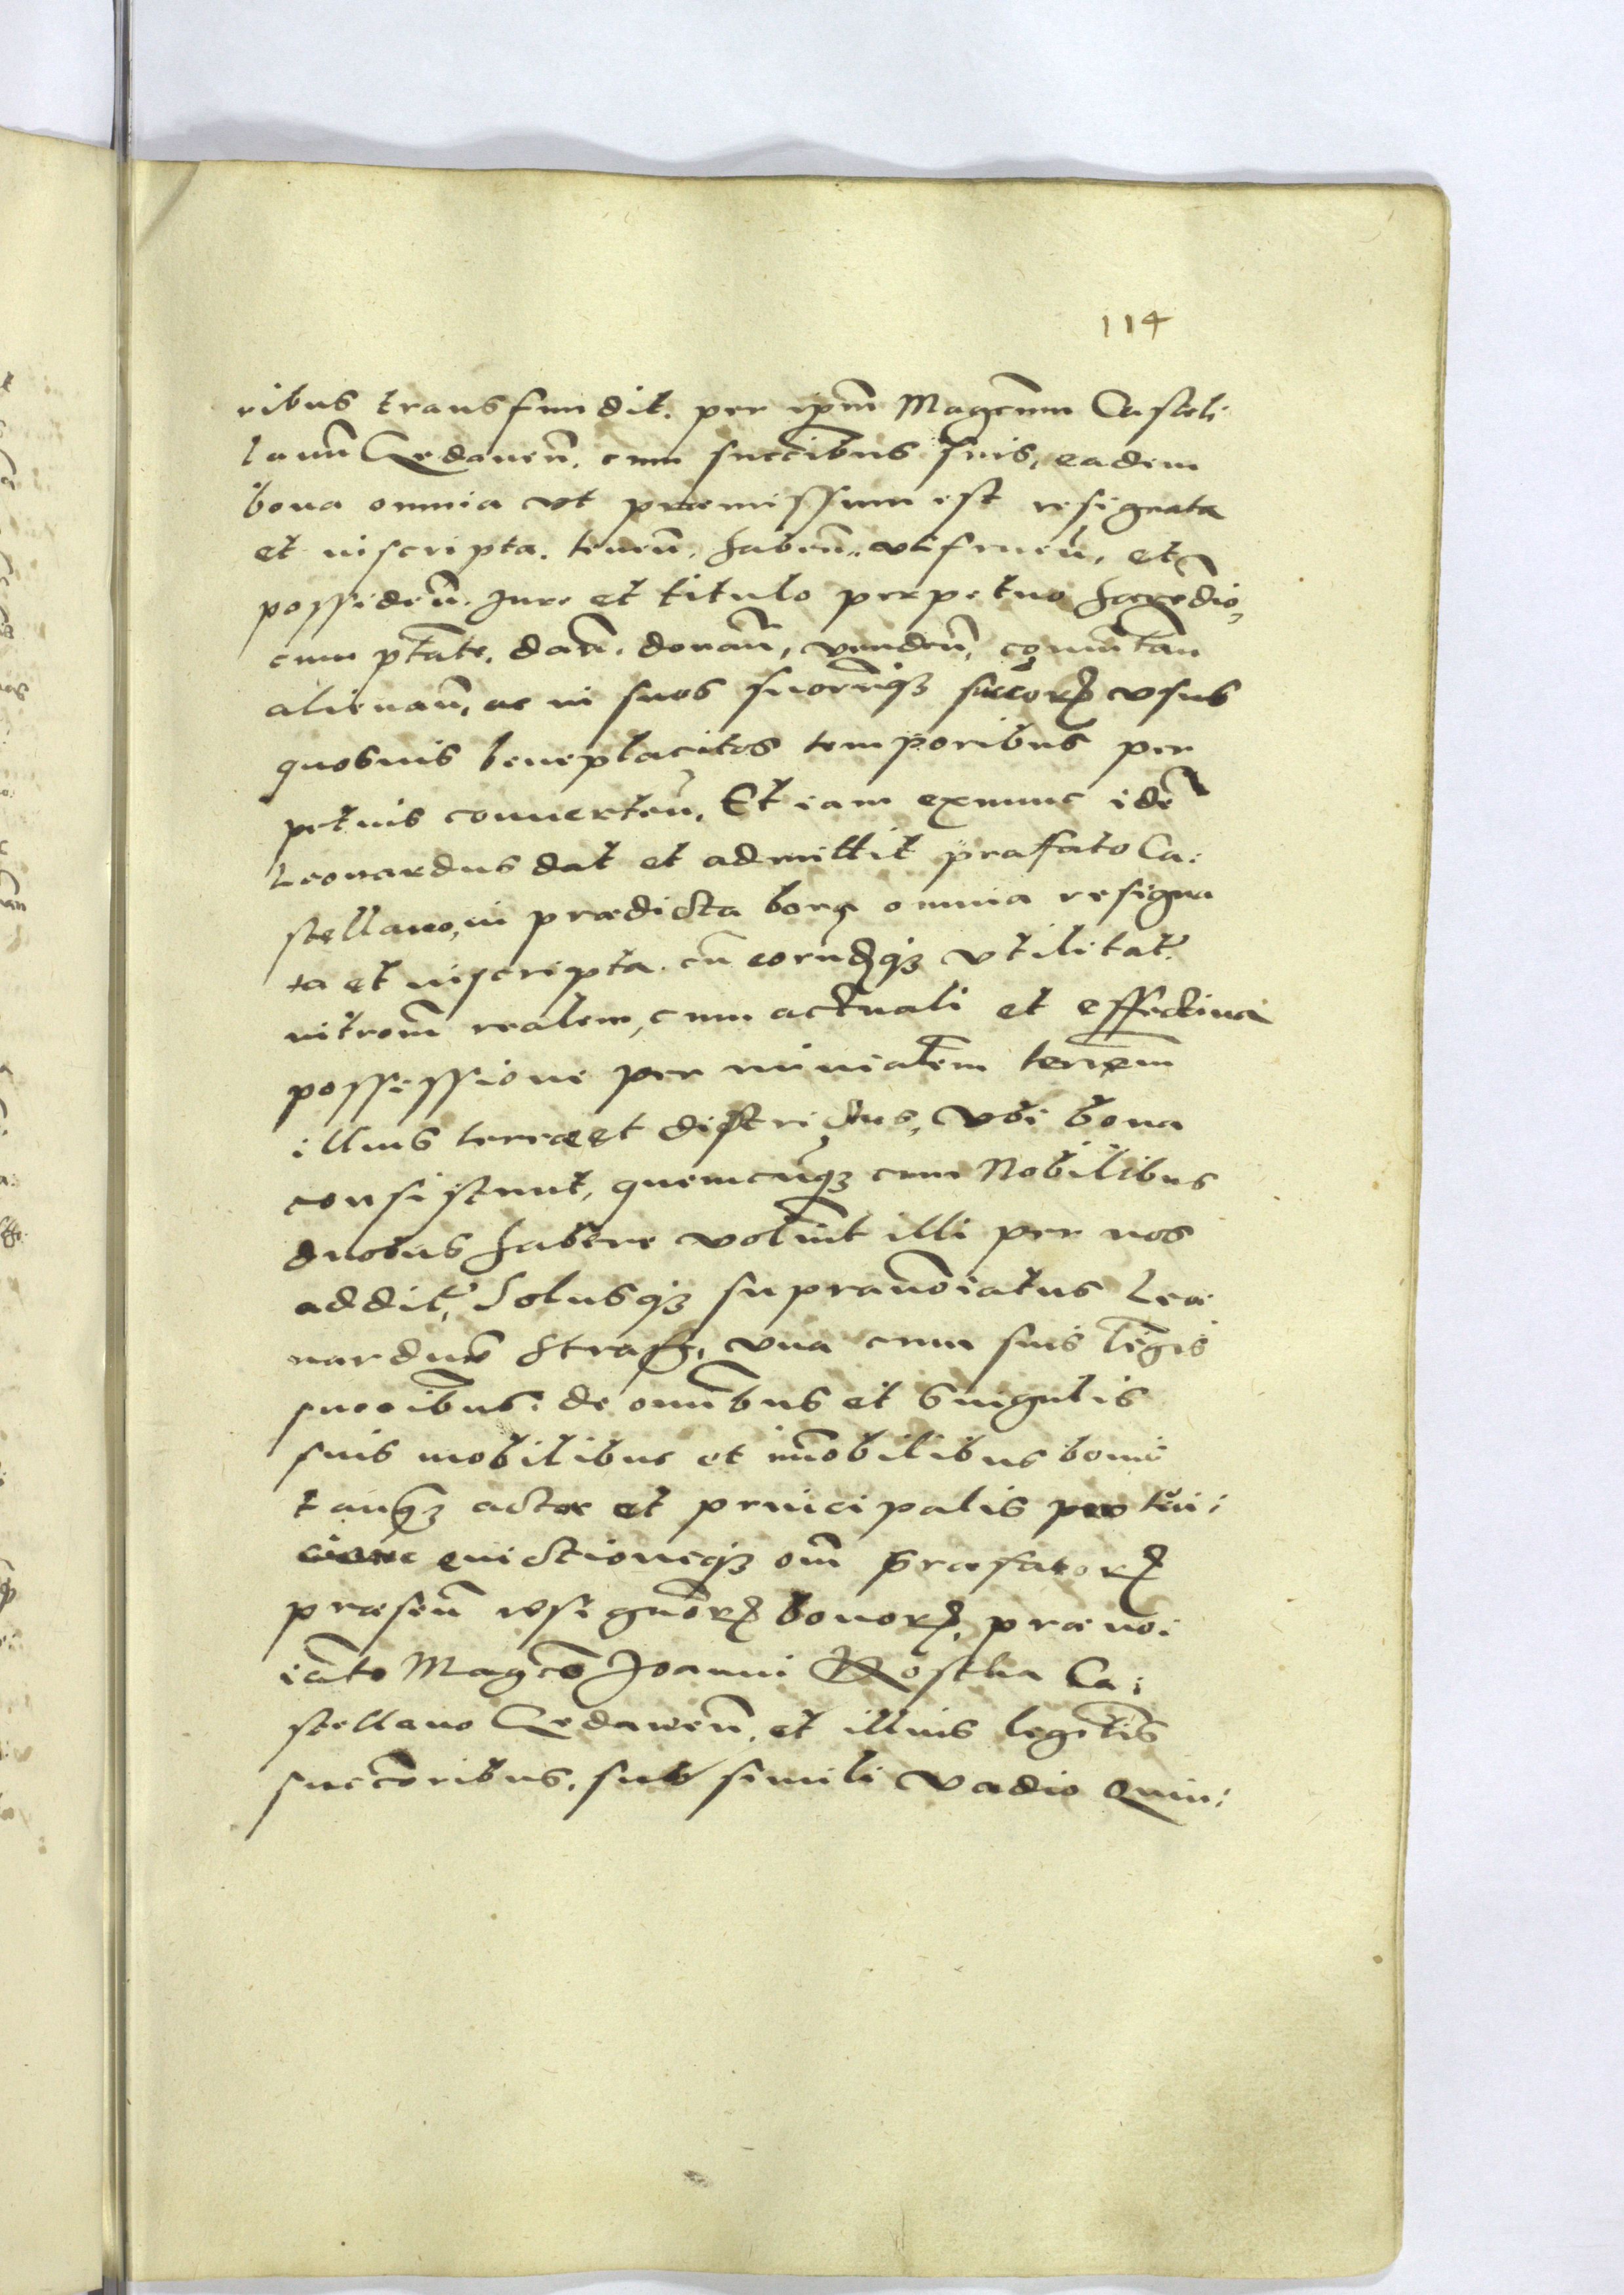 114
ribus transfundit. per ipm̄ Magcum Castel:
lanū Gedanen̄. cum succibus suis, eadem
bona omnia vt præmissum est resignata
et inscripta. tenen̄. haben̄. vtifruen̄. et
possiden̄. Jure et titulo perpetuo hæredio,
cum ptāte. dan̄. donan̄, venden̄, comutan̄
alienan̄, ac in suos suorūqꝫ succorꝝ vsus
quosuis beneplacitos temporibus per
petuis conuerten̄. Et iam exnunc idē
Leonardus dat et admittit præfato Ca:
stellano, in prædicta bona omnia resigna
ta et inscripta. cū eorundqꝫ vtilitat.
introm̄ realem, cum actuali et effectiua
possessione per minialem terrem̄
illius terræ et districtus, vbi bona
consistunt, quemcunqꝫ cum Nobilibus
duobus habere volunt illi per nos
addit, Solusqꝫ supranoīatus Leo
nardus Stras, vna cum suis legis
succibus. de omnībus et singulis
suis mobilibus et imobilibus bonis
tanqꝫ actor et principalis pro tui:
cione euictioneqꝫ om̄ præfatorꝝ
præsen̄ resignorꝝ bonorꝝ, præno:
iāto Magco Joanni Kostka Ca:
stellano Gedanen̄. et illius legitīs
succōribus. sub simili vadio Quin: